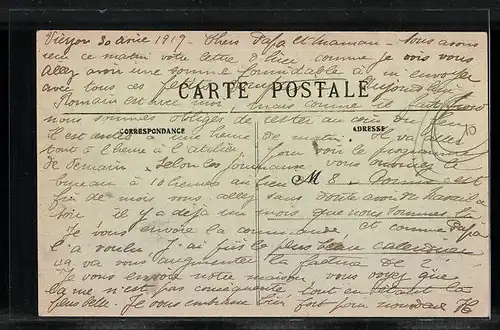 Vierzon 30 avril 1919. Chers Papa et Maman. Nous avons
reçu ce matin votre lettre d'hier comme je vois vous
allez avoir une somme formidable à m'envoyer
avec tous ces
CARTE POSTALE
Romain est avec moi, mais comme il fait
nous sommes obligés de rester au coin du feu
CORRESPONDANCE
ADRESSE
il est à une heure de matin. Il va aller
tout à l'heure à l'atelier pour voir le programme
de demain. Selon les journaux vous
bureau à 10 heures au lieu M 8. c'est
fin de mois vous allez sans doute avoir du travail
soir. il y a déjà un mois que nous sommes là
Je vous envoie la commande et comme Papa
l'a voulu. J'ai pris le plus beau calendrier
ça va vous augmenter la facture de 2
Je vous envoie notre maison, vous voyez que
ça me n'est pas conséquente tout en étant la
plus belle. Je vous embrasse bien fort pour nous deux